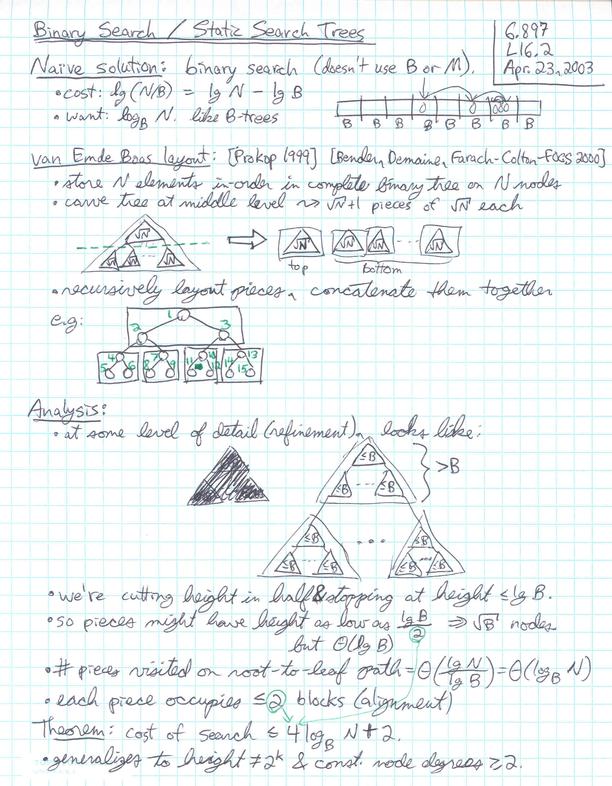 Binary Search / Static Search Trees
6.897
L16.2
Apr. 23, 2003
Naïve solution: binary search (doesn't use B or M).
• cost: lg (N/B) = lg N - lg B
• want: log_B N. like B-trees
B B B B B B B
van Emde Boas layout: [Prokop 1999] [Bender, Demaine, Farach-Colton-FOCS 2000]
• store N elements in-order in complete binary tree on N nodes
• carve tree at middle level ⇝ √N+1 pieces of √N each
√N
√N √N √N
√N √N √N ... √N
top bottom
• recursively layout pieces, concatenate them together
e.g:
1
2 3
4 7 10 13
5 6 8 9 11 12 14 15
Analysis:
• at some level of detail (refinement), looks like:
≤B
≤B ... ≤B
>B
≤B ... ≤B
≤B ≤B ≤B ... ≤B
• we're cutting height in half & stopping at height ≤ lg B.
• so pieces might have height as low as lg B / 2 ⇒ √B nodes
but Θ(lg B)
• # pieces visited on root-to-leaf path = Θ(lg N / lg B) = Θ(log_B N)
• each piece occupies ≤ 2 blocks (alignment)
Theorem: cost of search ≤ 4 log_B N + 2.
• generalizes to height ≠ 2^k & const. node degrees ≥ 2.